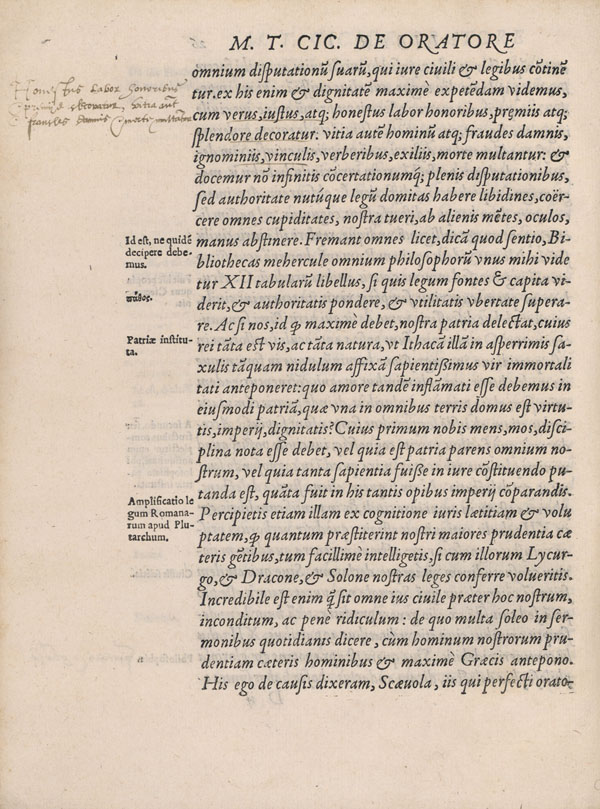 M. T. CIC. DE ORATORE
omnium disputationũ suarũ, qui iure ciuili & legibus cõtinẽ
tur. ex his enim & dignitatẽ maximè expetẽdam videmus,
cum verus, iustus, atq; honestus labor honoribus, pręmiis atq;
splendore decoratur: vitia autẽ hominũ atq; fraudes damnis,
ignominiis, vinculis, verberibus, exiliis, morte multantur: &
docemur nõ infinitis cõcertationumq; plenis disputationibus,
sed authoritate nutúque legũ domitas habere libidines, coër-
cere omnes cupiditates, nostra tueri, ab alienis mẽtes, oculos,
manus abstinere. Fremant omnes licet, dicã quod sentio, Bi-
bliothecas mehercule omnium philosophorũ vnus mihi vide
tur XII tabularũ libellus, si quis legum fontes & capita vi-
derit, & authoritatis pondere, & vtilitatis vbertate supera-
re. Ac si nos, id ꝙ maximè debet, nostra patria delectat, cuius
rei tãta est vis, ac tãta natura, vt Ithacã illã in asperrimis sa-
xulis tãquam nidulum affixã sapientissimus vir immortali
tati anteponeret: quo amore tandẽ inflãmati esse debemus in
eiusmodi patriã, quæ vna in omnibus terris domus est virtu-
tis, imperij, dignitatis? Cuius primum nobis mens, mos, disci-
plina nota esse debet, vel quia est patria parens omnium no-
strum, vel quia tanta sapientia fuisse in iure cõstituendo pu-
tanda est, quãta fuit in his tantis opibus imperij cõparandis.
Percipietis etiam illam ex cognitione iuris lætitiam & volu
ptatem, ꝙ quantum præstiterint nostri maiores prudentia cæ
teris gẽtibus, tum facillimè intelligetis, si cum illorum Lycur-
go, & Dracone, & Solone nostras leges conferre volueritis.
Incredibile est enim q̃ sit omne ius ciuile præter hoc nostrum,
inconditum, ac penè ridiculum: de quo multa soleo in ser-
monibus quotidianis dicere, cùm hominum nostrorum pru-
dentiam cæteris hominibus & maximè Græcis antepono.
His ego de causis dixeram, Scæuola, iis qui perfecti orato-
labor honoribus
decoratur, vitia aut
fraudes damnis
Id est, ne quidẽ
decipere debe-
mus.
Patriæ institu-
ta.
Amplificatio le
gum Romana-
rum apud Plu-
tarchum.